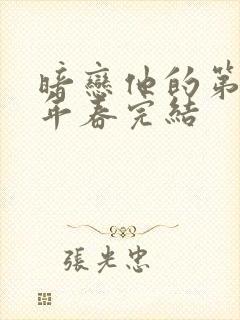 暗戀他的第
年春完結
張光忠